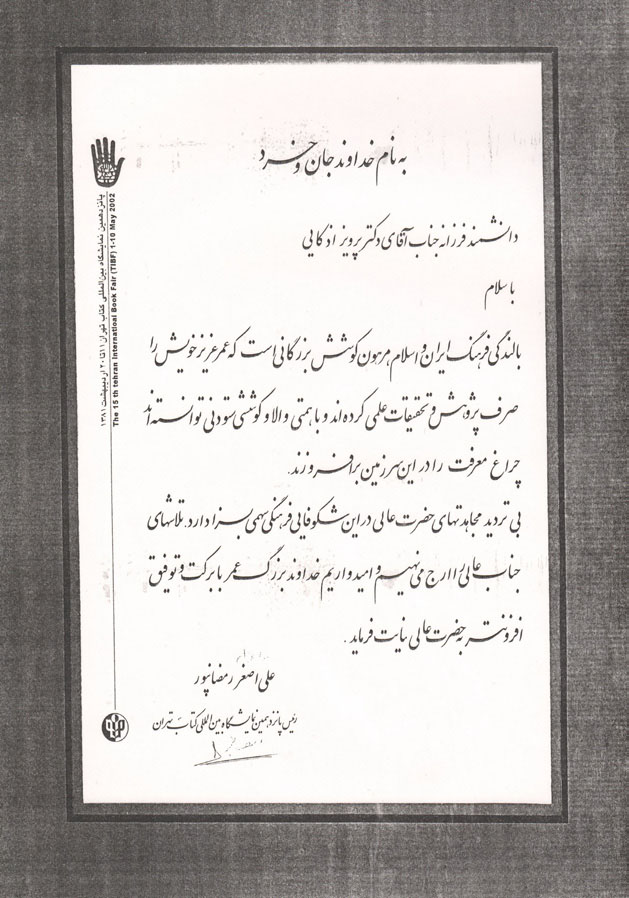 به نام خداوند جان و خرد
دانشمند فرزانه جناب آقای دکتر پرویز اذکایی
با سلام
بالندگی فرهنگ ایران و اسلام مرهون کوشش بزرگانی است که عمر عزیز خویش را
صرف پژوهش و تحقیقات علمی کرده اند و با همتی والا و کوششی ستودنی توانسته اند
چراغ معرفت را در این سرزمین برافروزند.
بی تردید مجاهدتهای حضرت عالی در این شکوفایی فرهنگی سهمی بسزا دارد. تلاشهای
جناب عالی را ارج می نهیم و امیدواریم خداوند بزرگ عمر با برکت و توفیق
افزونتر به حضرت عالی عنایت فرماید.
علی اصغر رمضانپور
رئیس پانزدهمین نمایشگاه بین المللی کتاب تهران
پانزدهمین نمایشگاه بین‌المللی کتاب تهران ۱۱ تا ۲۰ اردیبهشت ۱۳۸۱
The 15 th tehran Internatioal Book Fair (TIBF) 1-10 May 2002